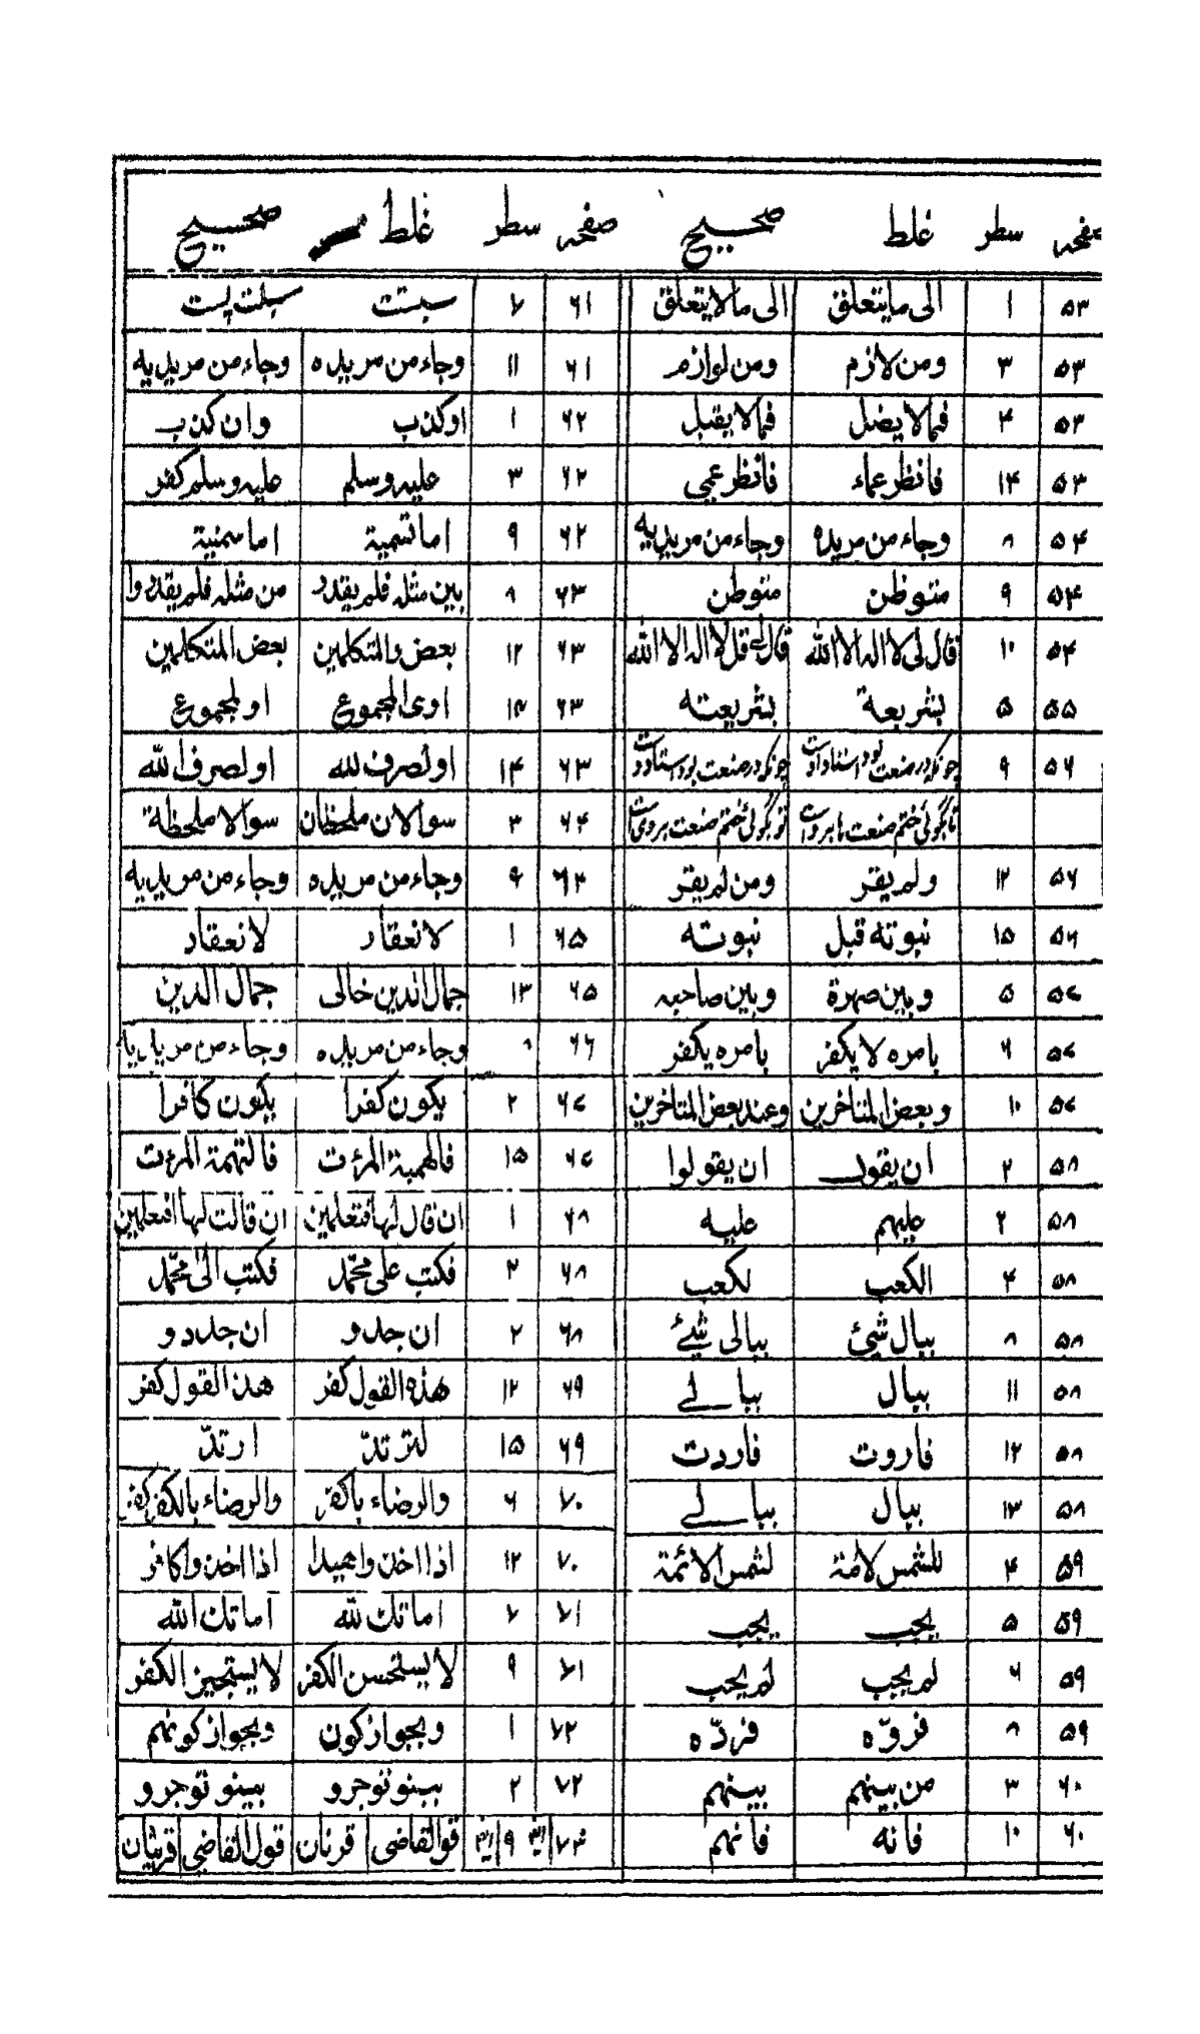 صفحہ سطر غلط صحیح صفحہ سطر غلط صحیح
۵۳ ۱ الی ما یتعلق الی ما لا یتعلق ۶۱ ۷ سبتت
۵۳ ۳ ومن لازم ومن لوازم ۶۱ ۱۱ وجاء من مریدہ وجاء من مریدیہ
۵۳ ۴ فما لا یضل فما لا یقبل ۶۲ ۱ او کذب وان کذب
۵۳ ۱۴ فانظر عماء فانظر عمی ۶۲ ۳ علیہ وسلم علیہ وسلم کفر
۵۴ ۸ وجاء من مریدہ وجاء من مریدیہ ۶۲ ۹ اما تسمیة اما سمنیة
۵۴ ۹ متوظن متوطن ۶۳ ۸ بین مثلہ فلم یقدر من مثلہ فلم یقدروا
۵۴ ۱۰ قال لی لا الہ الا اللہ قال لی قل لا الہ الا اللہ ۶۳ ۱۲ بعض والمتکلمین بعض المتکلمین
۵۵ ۵ بشریعة بشریعته ۶۳ ۱۳ اوی المجموع او لمجموع
۵۶ ۹ ۶۳ ۱۴ او لصرف للہ او لصرف اللہ
۶۴ ۳ سوالان ملحظان سوالا ملحظة
۵۶ ۱۲ ولم یقر ومن لم یقر ۶۴ ۹ وجاء من مریدہ وجاء من مریدیہ
۵۶ ۱۵ نبوته قبل نبوته ۶۵ ۱ لانعقار لانعقاد
۵۷ ۵ وبین صهرة وبین صاحبہ ۶۵ ۱۳ جمال الدین خالی جمال الدین
۵۷ ۶ بامرہ لا یکفر بامرہ یکفر ۶۶ ۸ وجاء من مریدہ وجاء من مریدیہ
۵۷ ۱۰ وبعض المتاخرین وعند بعض المتاخرین ۶۷ ۲ یکون کفرا یکون کافرا
۵۸ ۲ ان یقول ان یقولوا ۶۷ ۱۵ فالهمیة المرءت فالتهمة المرءت
۵۸ ۲ علیهم علیہ ۶۸ ۱ ان قال لها افتعلمین ان قالت لها افتعلمین
۵۸ ۴ الکعب لکعب ۶۸ ۲ فکتب علی محمد فکتب الی محمد
۵۸ ۸ ببال شیئ ببالی شیئ ۶۸ ۲ ان جدو ان جددو
۵۸ ۱۱ ببال ببالے ۶۹ ۱۲ هذہ القول کفر هذا القول کفر
۵۸ ۱۲ فاروت فاردت ۶۹ ۱۵ لترتدّ ارتدّ
۵۸ ۱۳ ببال ببالے ۷۰ ۶ والرضاء باکفر والرضاء بالکفر کفر
۵۹ ۴ للشمس لامة لشمس الائمة ۷۰ ۱۲
۵۹ ۵ یجب یجب ۷۱ ۷ اماتك للہ اماتك اللہ
۵۹ ۶ لم یجب لم یجب ۷۱ ۹ لا یستحسن الکفر لا یستجیز الکفر
۵۹ ۸ فروّہ فردّہ ۷۲ ۱ وبجواز کون وبجواز کونهم
۶۰ ۳ من بینهم بینهم ۷۲ ۲ بینو توجرو بینو توجرو
۶۰ ۱۰ فانه فانهم ۷۳ ۹ قو القاضی قرنان قول القاضی قرنیان